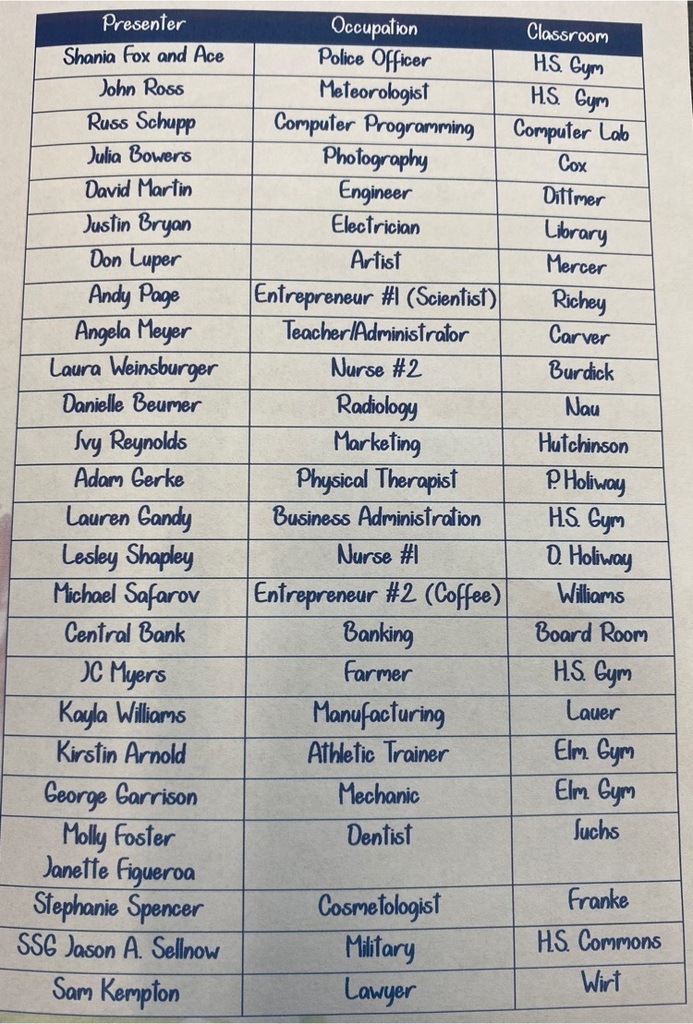 Presenter Occupation Classroom
Shania Fox and Ace Police Officer H.S. Gym
John Ross Meteorologist H.S. Gym
Russ Schupp Computer Programming Computer Lab
Julia Bowers Photography Cox
David Martin Engineer Dittmer
Justin Bryan Electrician Library
Don Luper Artist Mercer
Andy Page Entrepreneur #1 (Scientist) Richey
Angela Meyer Teacher/Administrator Carver
Laura Weinsburger Nurse #2 Burdick
Danielle Beumer Radiology Nau
Ivy Reynolds Marketing Hutchinson
Adam Gerke Physical Therapist P. Holiway
Lauren Gandy Business Administration H.S. Gym
Lesley Shapley Nurse #1 D. Holiway
Michael Safarov Entrepreneur #2 (Coffee) Williams
Central Bank Banking Board Room
JC Myers Farmer H.S. Gym
Kayla Williams Manufacturing Lauer
Kirstin Arnold Athletic Trainer Elm. Gym
George Garrison Mechanic Elm. Gym
Molly Foster Dentist Fuchs
Janette Figueroa
Stephanie Spencer Cosmetologist Franke
SSG Jason A. Sellnow Military H.S. Commons
Sam Kempton Lawyer Wirt